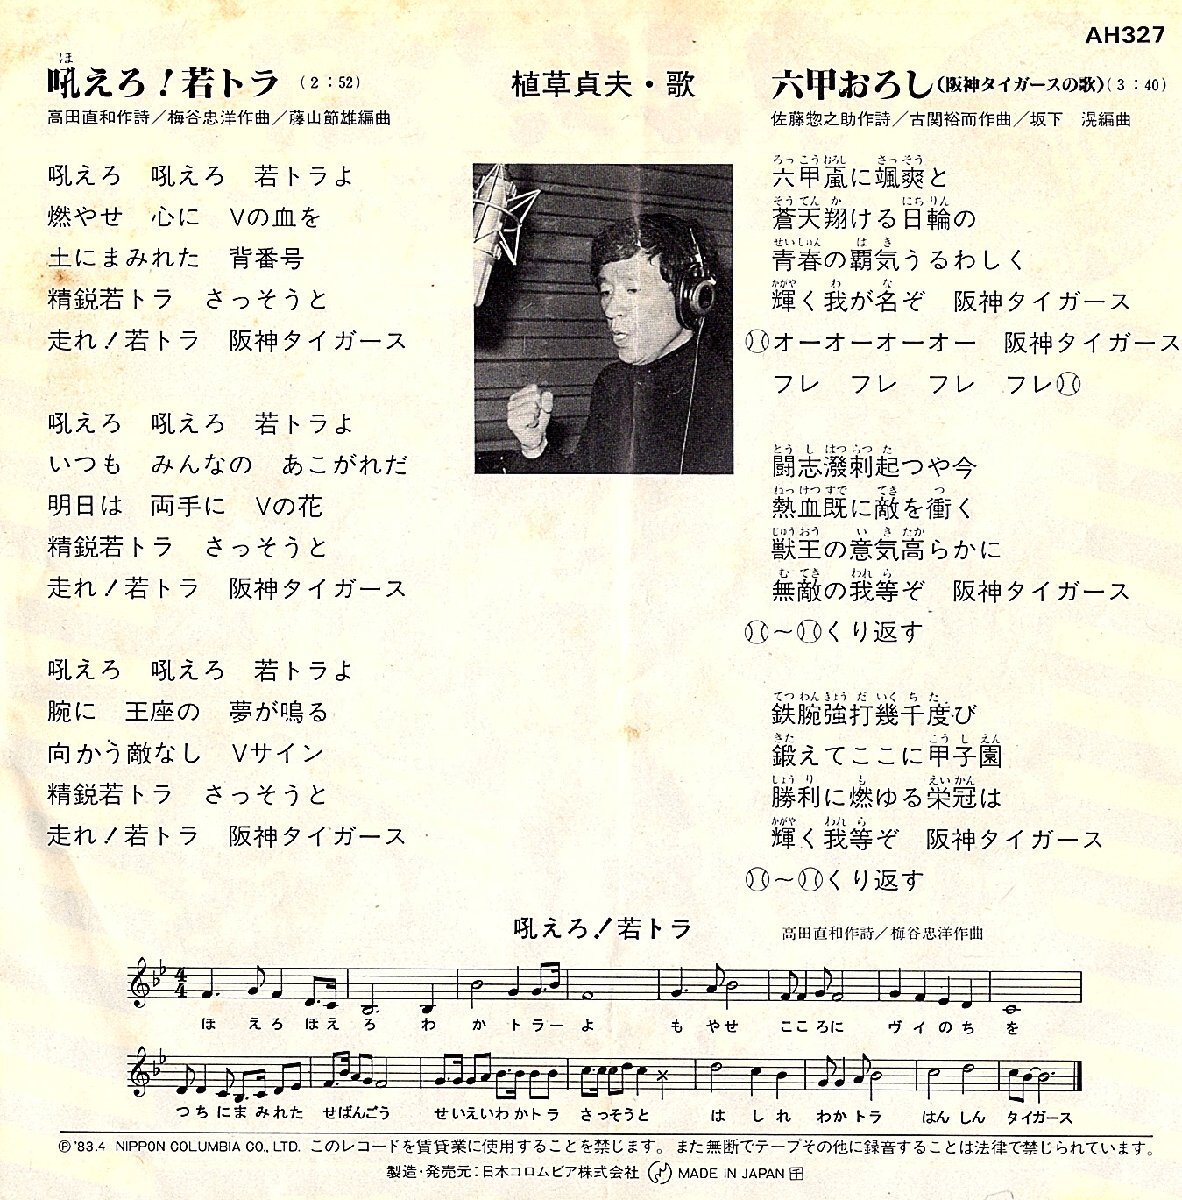 AH327
ほ
吼えろ！若トラ（2：52）
高田直和作詩／梅谷忠洋作曲／藤山節雄編曲
吼えろ　吼えろ　若トラよ
燃やせ　心に　Vの血を
土にまみれた　背番号
精鋭若トラ　さっそうと
走れ！若トラ　阪神タイガース
吼えろ　吼えろ　若トラよ
いつも　みんなの　あこがれだ
明日は　両手に　Vの花
精鋭若トラ　さっそうと
走れ！若トラ　阪神タイガース
吼えろ　吼えろ　若トラよ
腕に　王座の　夢が鳴る
向かう敵なし　Vサイン
精鋭若トラ　さっそうと
走れ！若トラ　阪神タイガース
植草貞夫・歌
六甲おろし（阪神タイガースの歌）（3：40）
佐藤惣之助作詩／古関裕而作曲／坂下　滉編曲
ろっこうおろし　さっそう
六甲嵐に颯爽と
そうてんか　にちりん
蒼天翔ける日輪の
せいしゅん　はき
青春の覇気うるわしく
かがや　わ　な
輝く我が名ぞ　阪神タイガース
オーオーオーオー　阪神タイガース
フレ　フレ　フレ　フレ
とうしはつらつた
闘志溌刺起つや今
ねっけつすで　てき　つ
熱血既に敵を衝く
じゅうおう　いきたか
獣王の意気高らかに
むてき　われら
無敵の我等ぞ　阪神タイガース
～くり返す
てつわんきょうだいくちた
鉄腕強打幾千度び
きた　こうしえん
鍛えてここに甲子園
しょうり　も　えいかん
勝利に燃ゆる栄冠は
かがや　われら
輝く我等ぞ　阪神タイガース
～くり返す
吼えろ！若トラ
高田直和作詩／梅谷忠洋作曲
4
4
ほ　えろ　ほえ　ろ　わ　か　トラー　よ　も　やせ　こころに　ヴィのち　を
つちにまみれた　せばんごう　せいえいわかトラ　さっそうと　はしれ　わかトラ　はんしん　タイガース
Ⓟ'83.4　NIPPON COLUMBIA CO., LTD.　このレコードを賃貸業に使用することを禁じます。また無断でテープその他に録音することは法律で禁じられています。
製造・発売元：日本コロムビア株式会社　MADE IN JAPAN